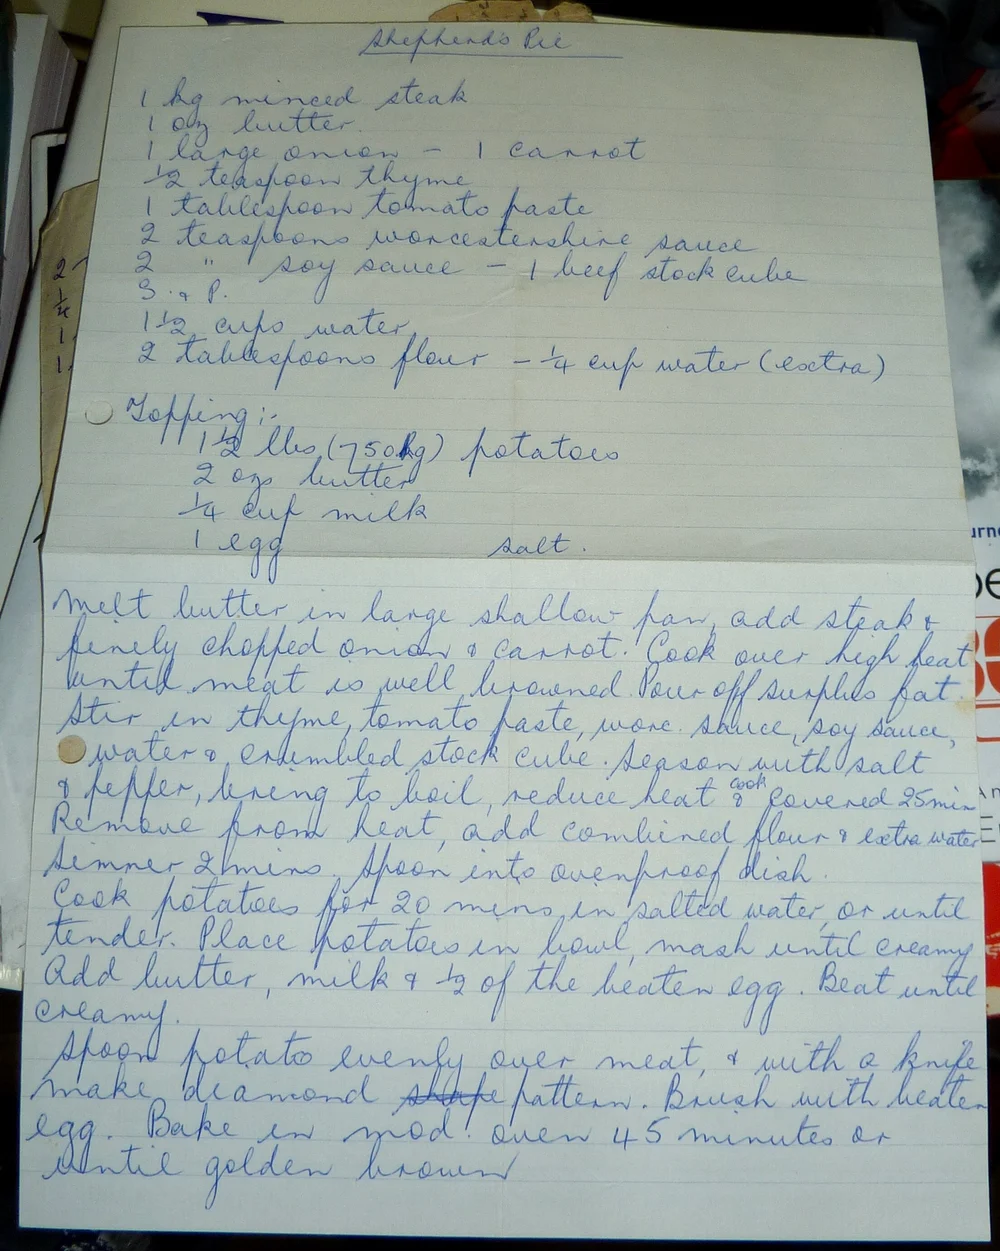 Shepherd's Pie
1 kg minced steak
1 oz butter.
1 large onion - 1 carrot
1/2 teaspoon thyme
1 tablespoon tomato paste
2 teaspoons worcestershire sauce
2 " soy sauce - 1 beef stock cube
S. & P.
1 1/2 cups water
2 tablespoons flour - 1/4 cup water (extra)
Topping:-
1 1/2 lbs (750kg) potatoes
2 ozs butter
1/4 cup milk
1 egg salt.
Melt butter in large shallow pan, add steak &
finely chopped onion & carrot. Cook over high heat
until meat is well browned. Pour off surplus fat
Stir in thyme, tomato paste, worc. sauce, soy sauce,
water & crumbled stock cube. Season with salt
& pepper, bring to boil, reduce heat & cook covered 25 min
Remove from heat, add combined flour & extra water
Simmer 2 mins. Spoon into ovenproof dish.
Cook potatoes for 20 mins in salted water, or until
tender. Place potatoes in bowl, mash until creamy
Add butter, milk & 1/2 of the beaten egg. Beat until
creamy.
Spoon potato evenly over meat, & with a knife
make diamond shape pattern. Brush with beaten
egg. Bake in mod. oven 45 minutes or
until golden brown